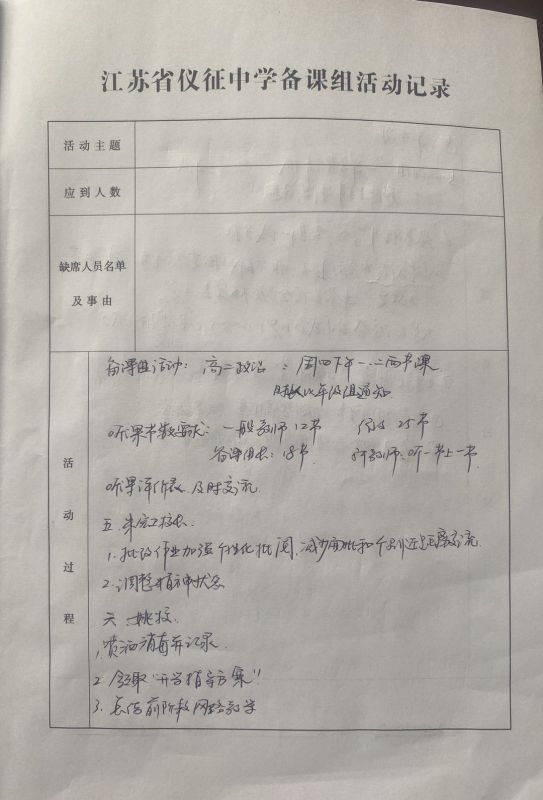 江苏省仪征中学备课组活动记录
活动主题
应到人数
缺席人员名单
及事由
活动过程
备课组活动：高二政治：周四下午一.二两节课
时以年级组通知
听课节数要求：一般教师12节 行政25节
备课组长：18节 新教师：听一节上一节
听课评价表及时交流
五.朱宏校长
1.批改作业加强个性化批阅,减少面批和个别近距离交流.
2.调整精神状态
六.姚校.
1.喷洒消毒并记录.
2.领取“开学指导方案”!
3.总结前阶段网络教学